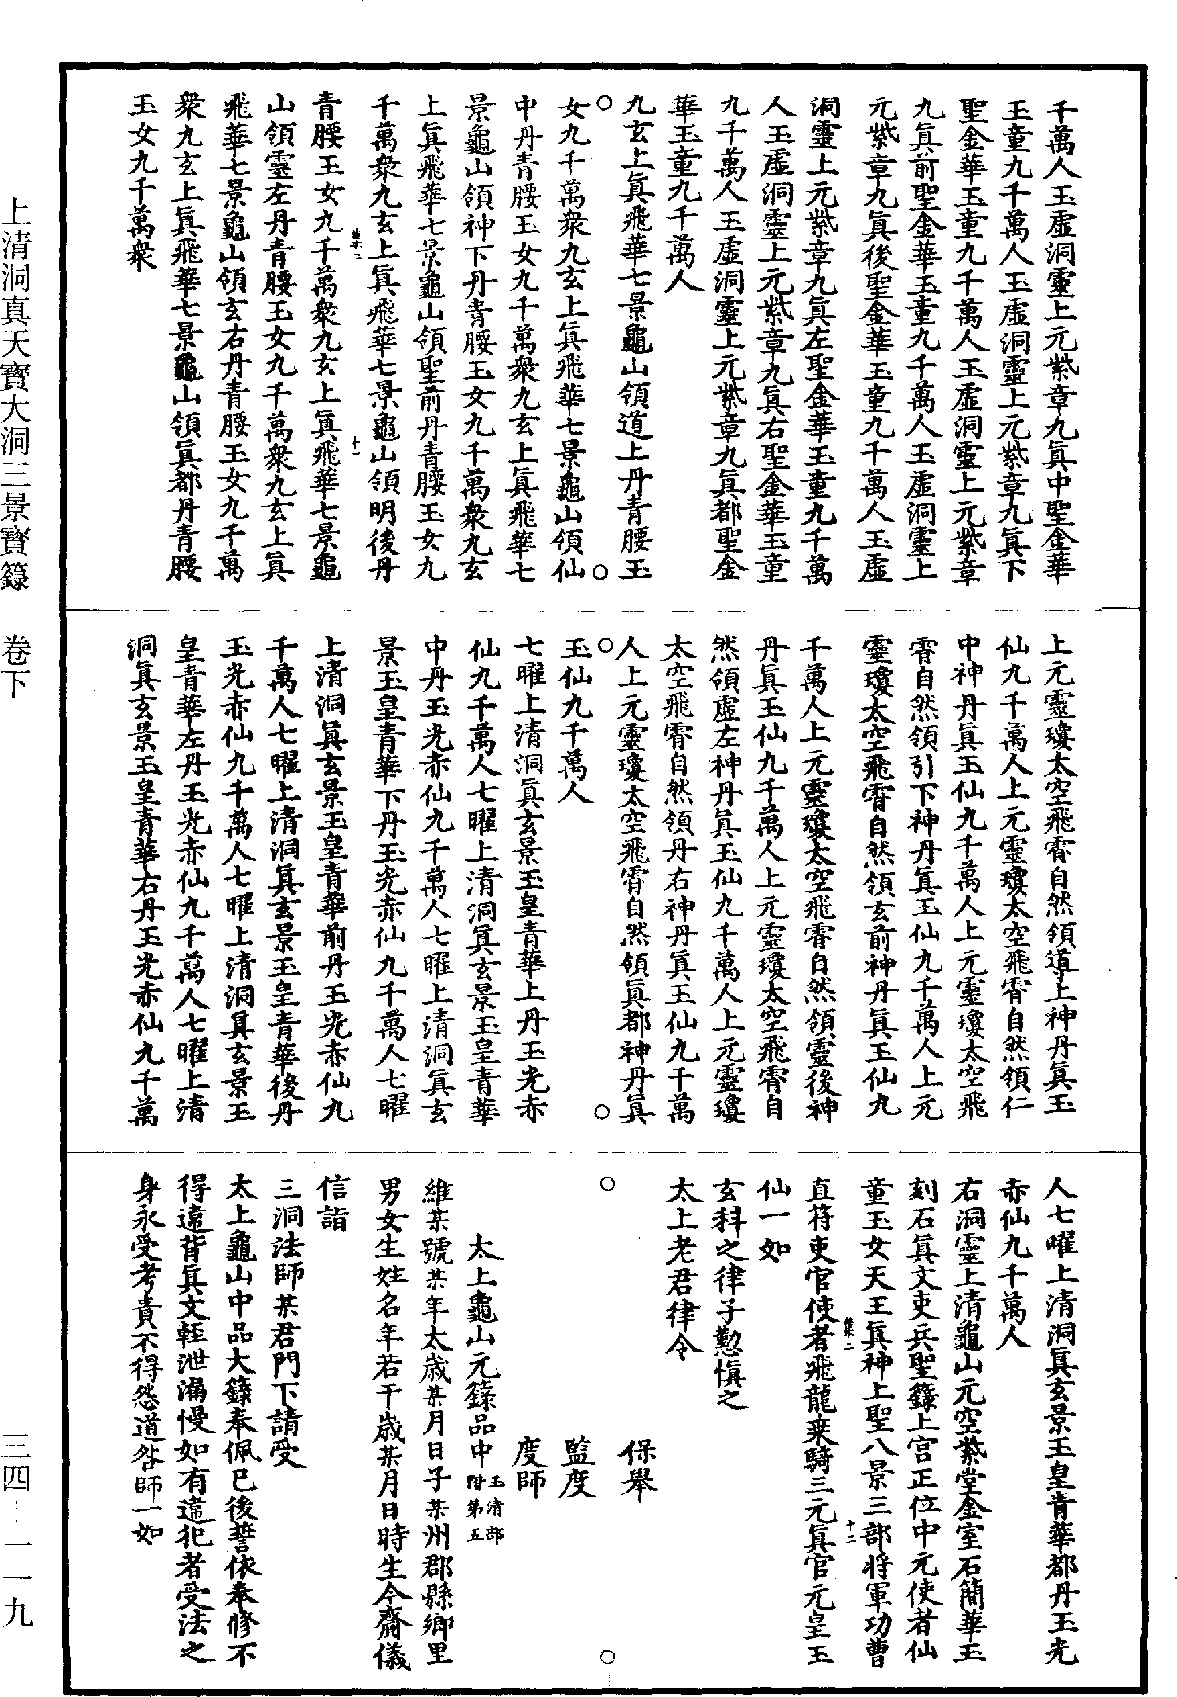 千萬人玉虛洞靈上元紫章九眞中聖金華
玉童九千萬人玉虛洞靈上元紫章九眞下
聖金華玉童九千萬人玉虛洞靈上元紫章
九眞前聖金華玉童九千萬人玉虛洞靈上
元紫章九眞後聖金華玉童九千萬人玉虛
洞靈上元紫章九眞左聖金華玉童九千萬
人玉虛洞靈上元紫章九眞右聖金華玉童
九千萬人玉虛洞靈上元紫章九眞都聖金
華玉童九千萬人
九玄上眞飛華七景龜山領道上丹青腰玉
女九千萬衆九玄上眞飛華七景龜山領仙
中丹青腰玉女九千萬衆九玄上眞飛華七
景龜山領神下丹青腰玉女九千萬衆九玄
上眞飛華七景龜山領聖前丹青腰玉女九
千萬衆九玄上眞飛華七景龜山領明後丹
十一
青腰玉女九千萬衆九玄上眞飛華七景龜
山領靈左丹青腰玉女九千萬衆九玄上眞
飛華七景龜山領玄右丹青腰玉女九千萬
衆九玄上眞飛華七景龜山領眞都丹青腰
玉女九千萬衆
上元靈瓊太空飛霄自然領道上神丹眞玉
仙九千萬人上元靈瓊太空飛霄自然領仁
中神丹眞玉仙九千萬人上元靈瓊太空飛
霄自然領引下神丹眞玉仙九千萬人上元
靈瓊太空飛霄自然領玄前神丹眞玉仙九
千萬人上元靈瓊太空飛霄自然領靈後神
丹眞玉仙九千萬人上元靈瓊太空飛霄自
然領虛左神丹眞玉仙九千萬人上元靈瓊
太空飛霄自然領丹右神丹眞玉仙九千萬
人上元靈瓊太空飛霄自然領眞都神丹眞
玉仙九千萬人
七曜上清洞眞玄景玉皇青華上丹玉光赤
仙九千萬人七曜上清洞眞玄景玉皇青華
中丹玉光赤仙九千萬人七曜上清洞眞玄
景玉皇青華下丹玉光赤仙九千萬人七曜
上清洞眞玄景玉皇青華前丹玉光赤仙九
千萬人七曜上清洞眞玄景玉皇青華後丹
玉光赤仙九千萬人七曜上清洞眞玄景玉
皇青華左丹玉光赤仙九千萬人七曜上清
洞眞玄景玉皇青華右丹玉光赤仙九千萬
人七曜上清洞眞玄景玉皇青華都丹玉光
赤仙九千萬人
右洞靈上清龜山元空紫堂金室石簡華玉
刻石眞文吏兵聖籙上宮正位中元使者仙
童玉女天王眞神上聖八景三部將軍功曹
十二
直符吏官使者飛龍乘騎三元眞官元皇玉
仙一如
玄科之律子懃愼之
太上老君律令
保舉
監度
度師
太上龜山元籙品中玉清部附第五
維某號某年太歲某月日子某州郡縣鄉里
男女生姓名年若干歲某月日時生今齋儀
信詣
三洞法師某君門下請受
太上龜山中品大籙奉佩已後誓依奉修不
得違背眞文輕泄漏慢如有違犯者受法之
身永受考責不得怨道咎師一如
上清洞真天寶大洞三景寶籙　卷下　三四－一一九